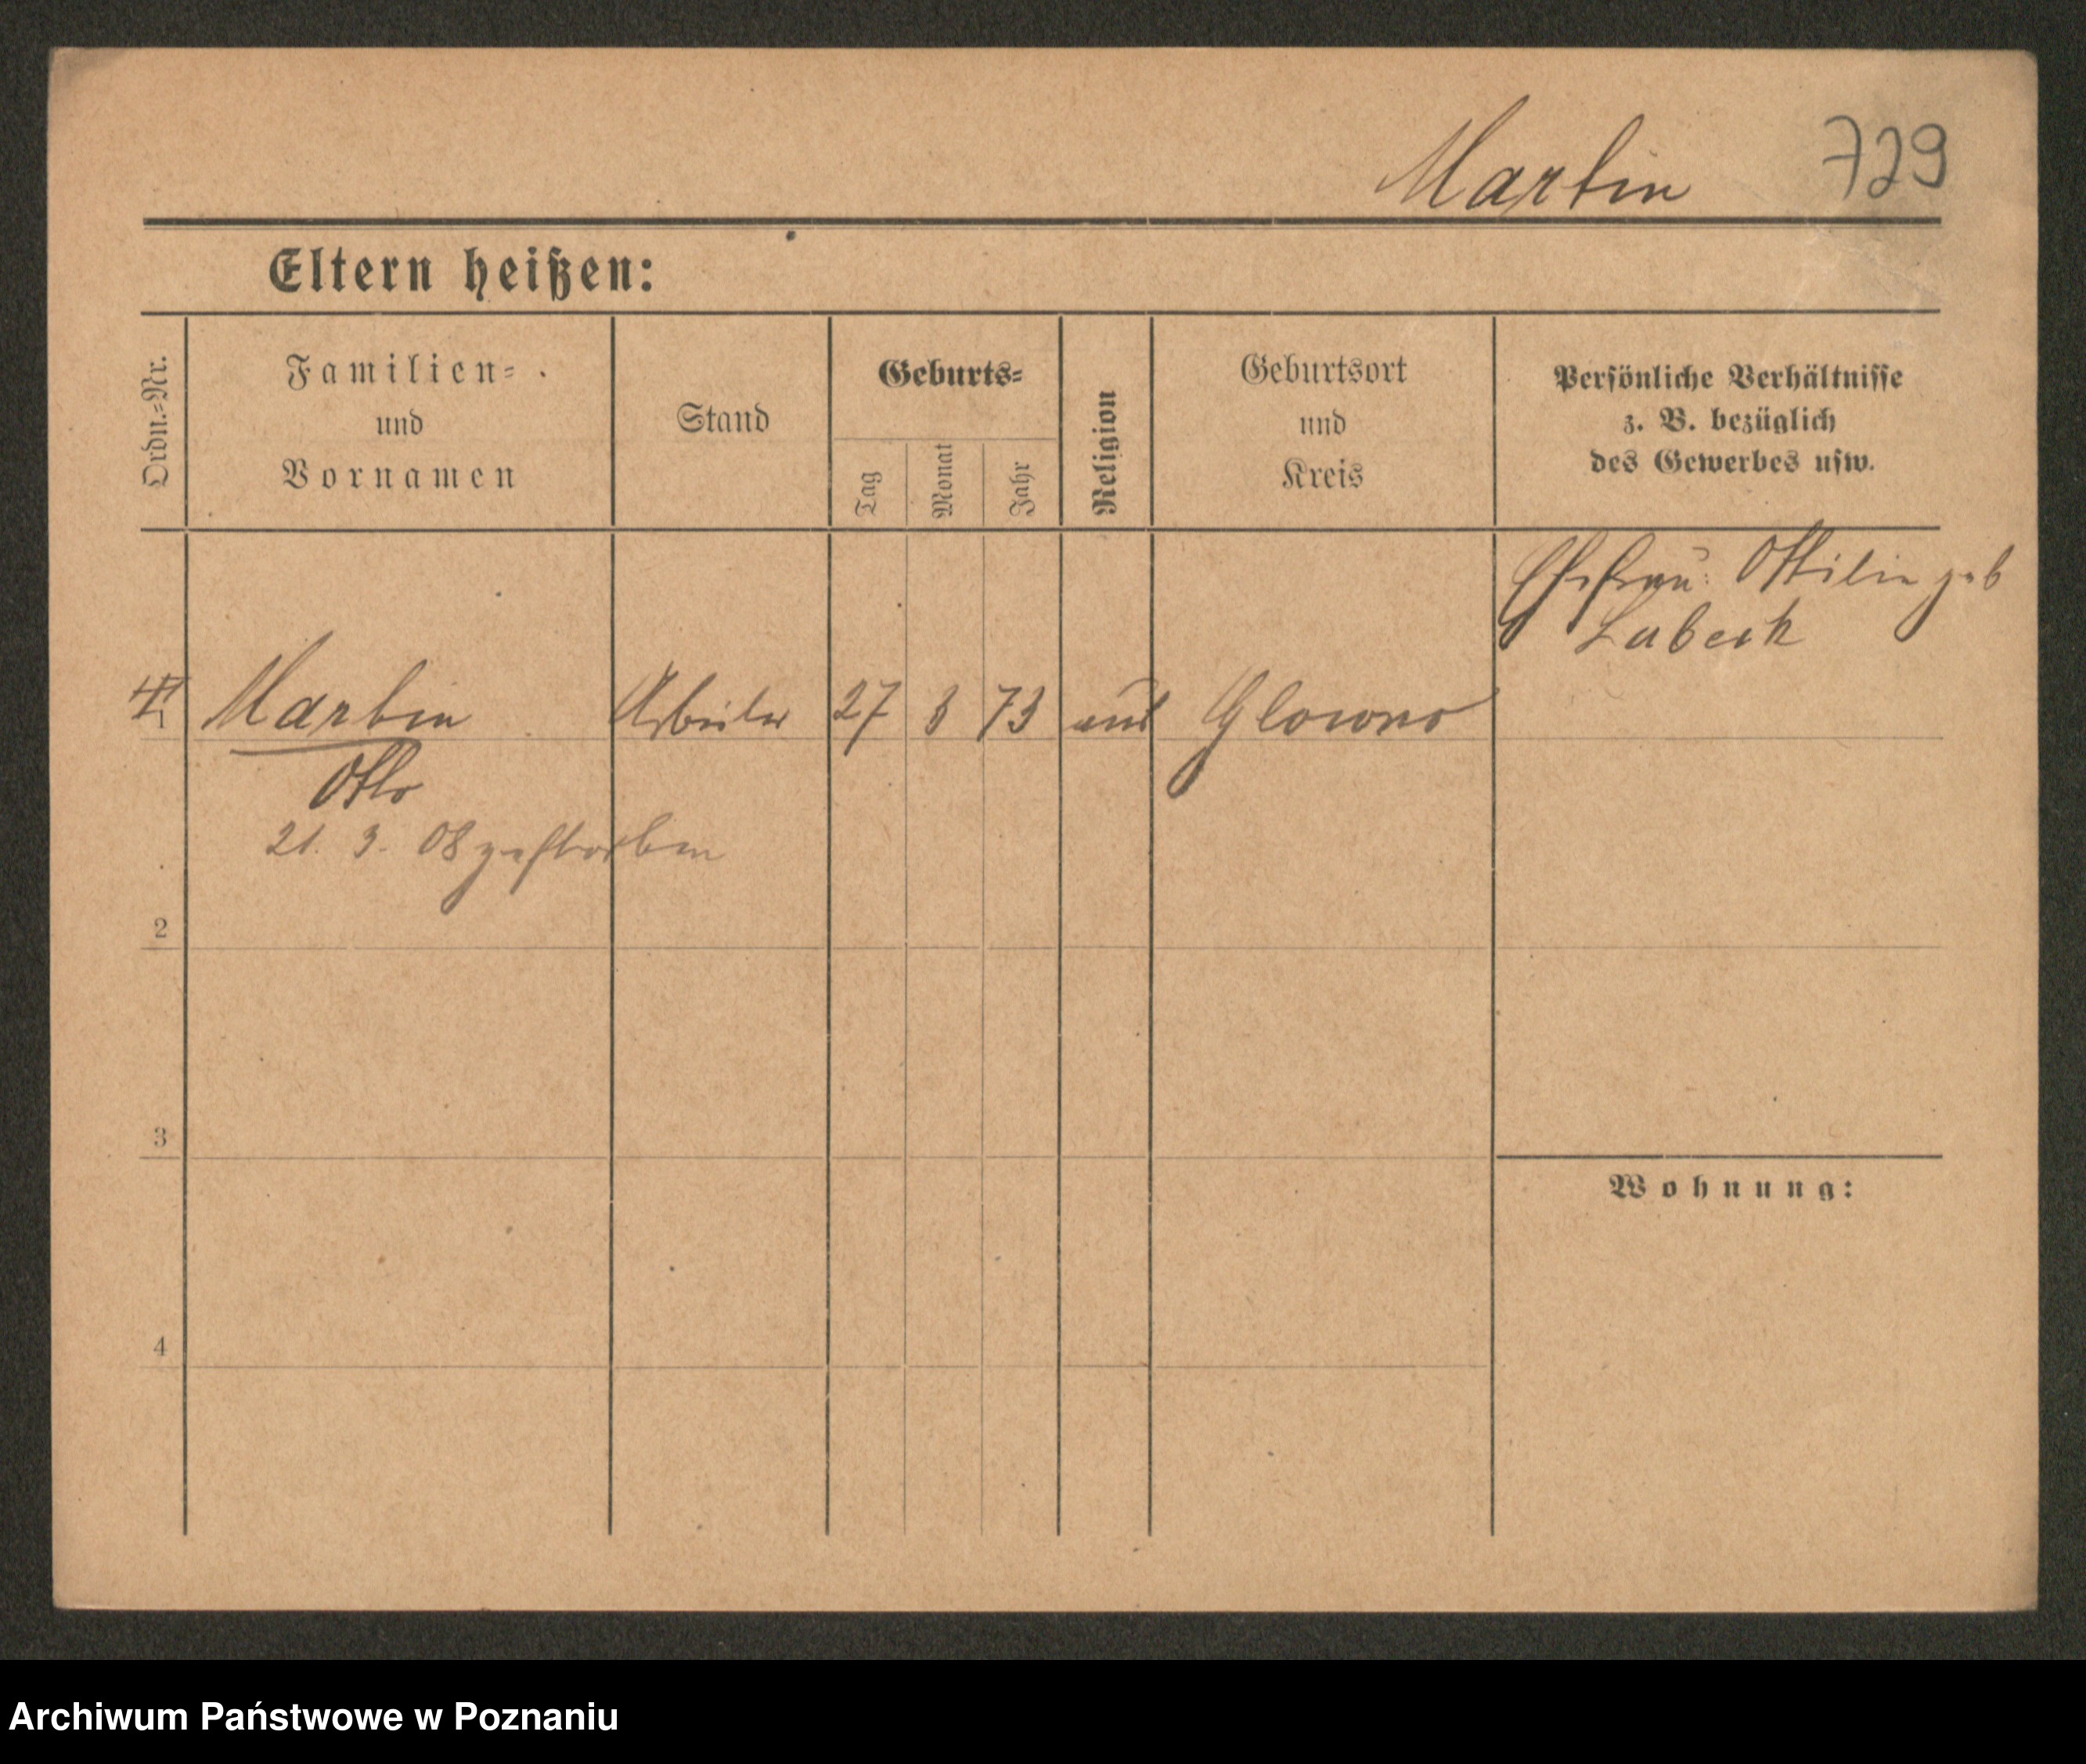 Martin 729
Eltern heißen:
Ordn.-Nr.
Familien-
und
Vornamen
Stand
Geburts-
Tag
Monat
Jahr
Religion
Geburtsort
und
Kreis
Persönliche Verhältnisse
z. B. bezüglich
des Gewerbes usw.
Ehefrau: Ottilie geb
Labeck
1 Martin Arbeiter 27 8 73 Glowno
Otto
21. 3. 08 gestorben
2
3
Wohnung:
4
Archiwum Państwowe w Poznaniu